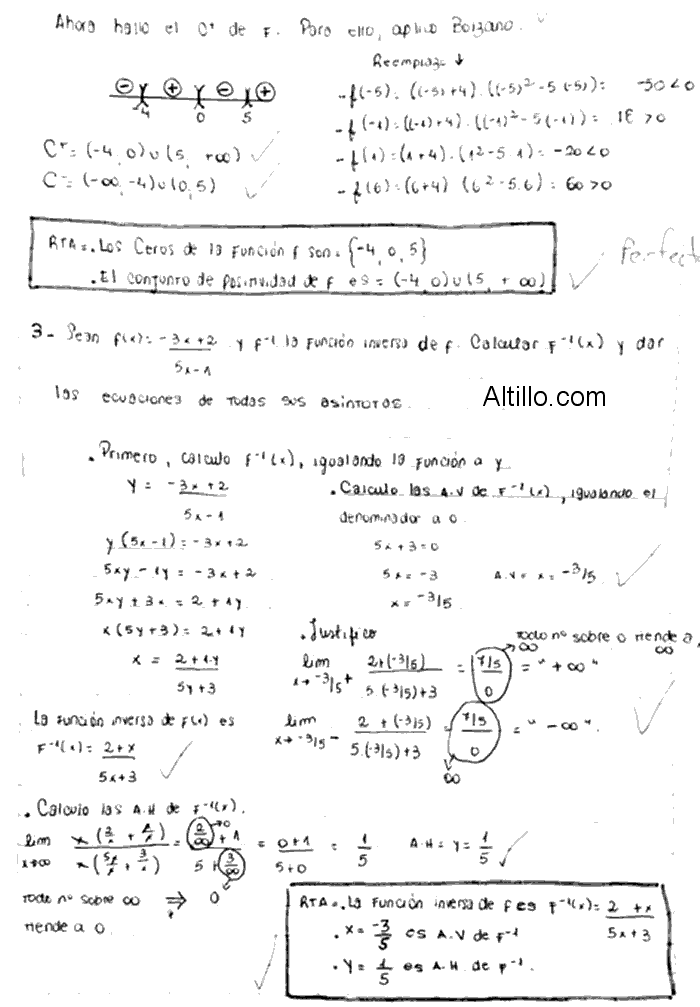 Ahora hallo el C⁺ de F. Para ello, aplico Bolzano.
Reemplazo ↓
⊖ ⊕ ⊖ ⊕
-4 0 5
- f(-5): ((-5)+4).((-5)²-5(-5)): -50<0
- f(-1):((-1)+4).((-1)²-5(-1)) = 18 >0
- f(1):(1+4).(1²-5.1)= -20<0
- f(6):(6+4) (6²-5.6)= 60>0
C⁺= (-4, 0)∪(5, +∞)
C⁻= (-∞, -4)∪(0, 5)
RTA=. Los Ceros de la Función f son: {-4, 0, 5}
. El conjunto de positividad de f es = (-4, 0)∪(5, +∞)
Perfecto
3- Sean f(x)= -3x+2 / 5x-1 y f⁻¹ la función inversa de f. Calcular F⁻¹(x) y dar
las ecuaciones de todas sus asíntotas.
Altillo.com
. Primero, calculo F⁻¹(x), igualando la función a y
y = -3x+2 / 5x-1
y(5x-1)= -3x+2
5xy-1y = -3x+2
5xy+3x = 2+1y
x(5y+3)= 2+1y
x = 2+1.y / 5y+3
La función inversa de F(x) es
F⁻¹(x)= 2+x / 5x+3
. Calculo las A.V de F⁻¹(x), igualando el
denominador a 0.
5x+3=0
5x= -3 A.V= x= -3/5
x= -3/5
. Justifico todo nº sobre 0 tiende a ∞
lim x→-3/5⁺ 2+(-3/5) / 5.(-3/5)+3 = 7/5 / 0 = "+∞"
∞
lim x→-3/5⁻ 2+(-3/5) / 5.(-3/5)+3 = 7/5 / 0 = "-∞".
∞
. Calculo las A.H de F⁻¹(x).
lim x→∞ x(2/x + x/x) / x(5x/x + 3/x) = 2/∞ + 1 / 5 + 3/∞ = 0+1 / 5+0 = 1/5 A.H= y= 1/5
todo nº sobre ∞ ⇒ 0
tiende a 0.
RTA=. La Función inversa de f es F⁻¹(x)= 2+x / 5x+3
. x= -3/5 es A.V de F⁻¹
. y= 1/5 es A.H de F⁻¹.